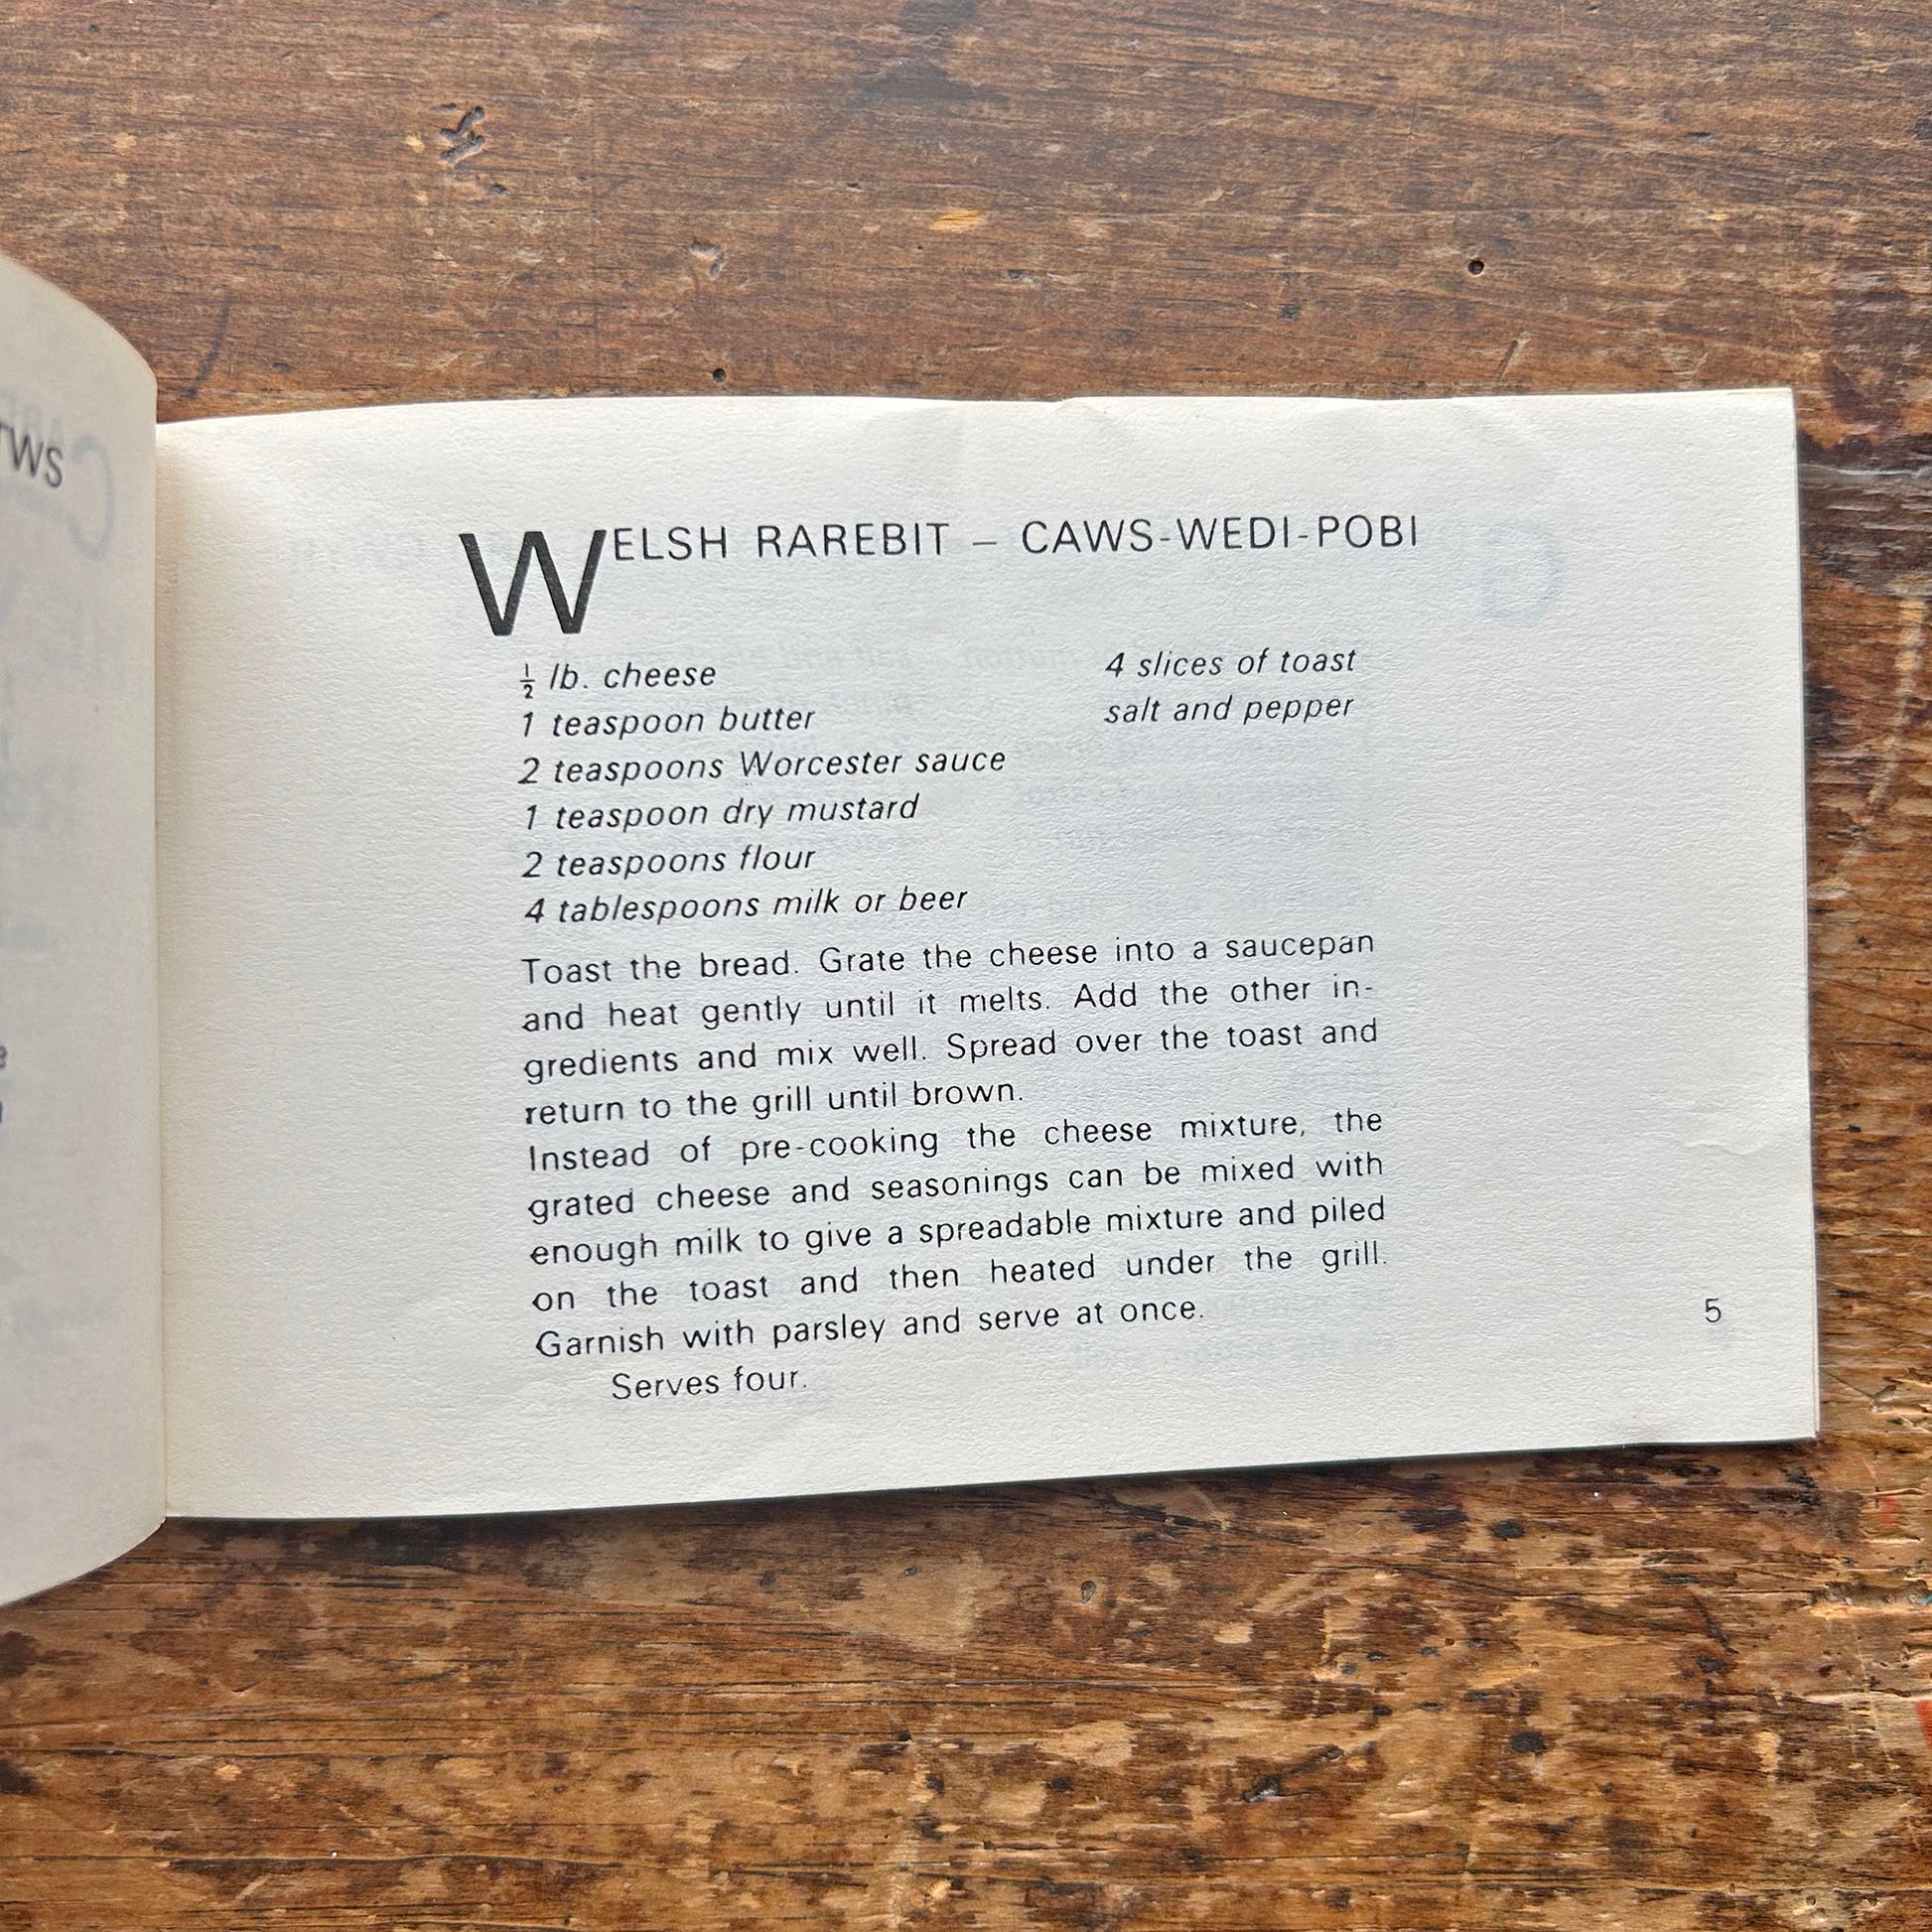 TWS
WELSH RAREBIT – CAWS-WEDI-POBI
½ lb. cheese
1 teaspoon butter
2 teaspoons Worcester sauce
1 teaspoon dry mustard
2 teaspoons flour
4 tablespoons milk or beer
4 slices of toast
salt and pepper
Toast the bread. Grate the cheese into a saucepan
and heat gently until it melts. Add the other in-
gredients and mix well. Spread over the toast and
return to the grill until brown.
Instead of pre-cooking the cheese mixture, the
grated cheese and seasonings can be mixed with
enough milk to give a spreadable mixture and piled
on the toast and then heated under the grill.
Garnish with parsley and serve at once.
Serves four.
5